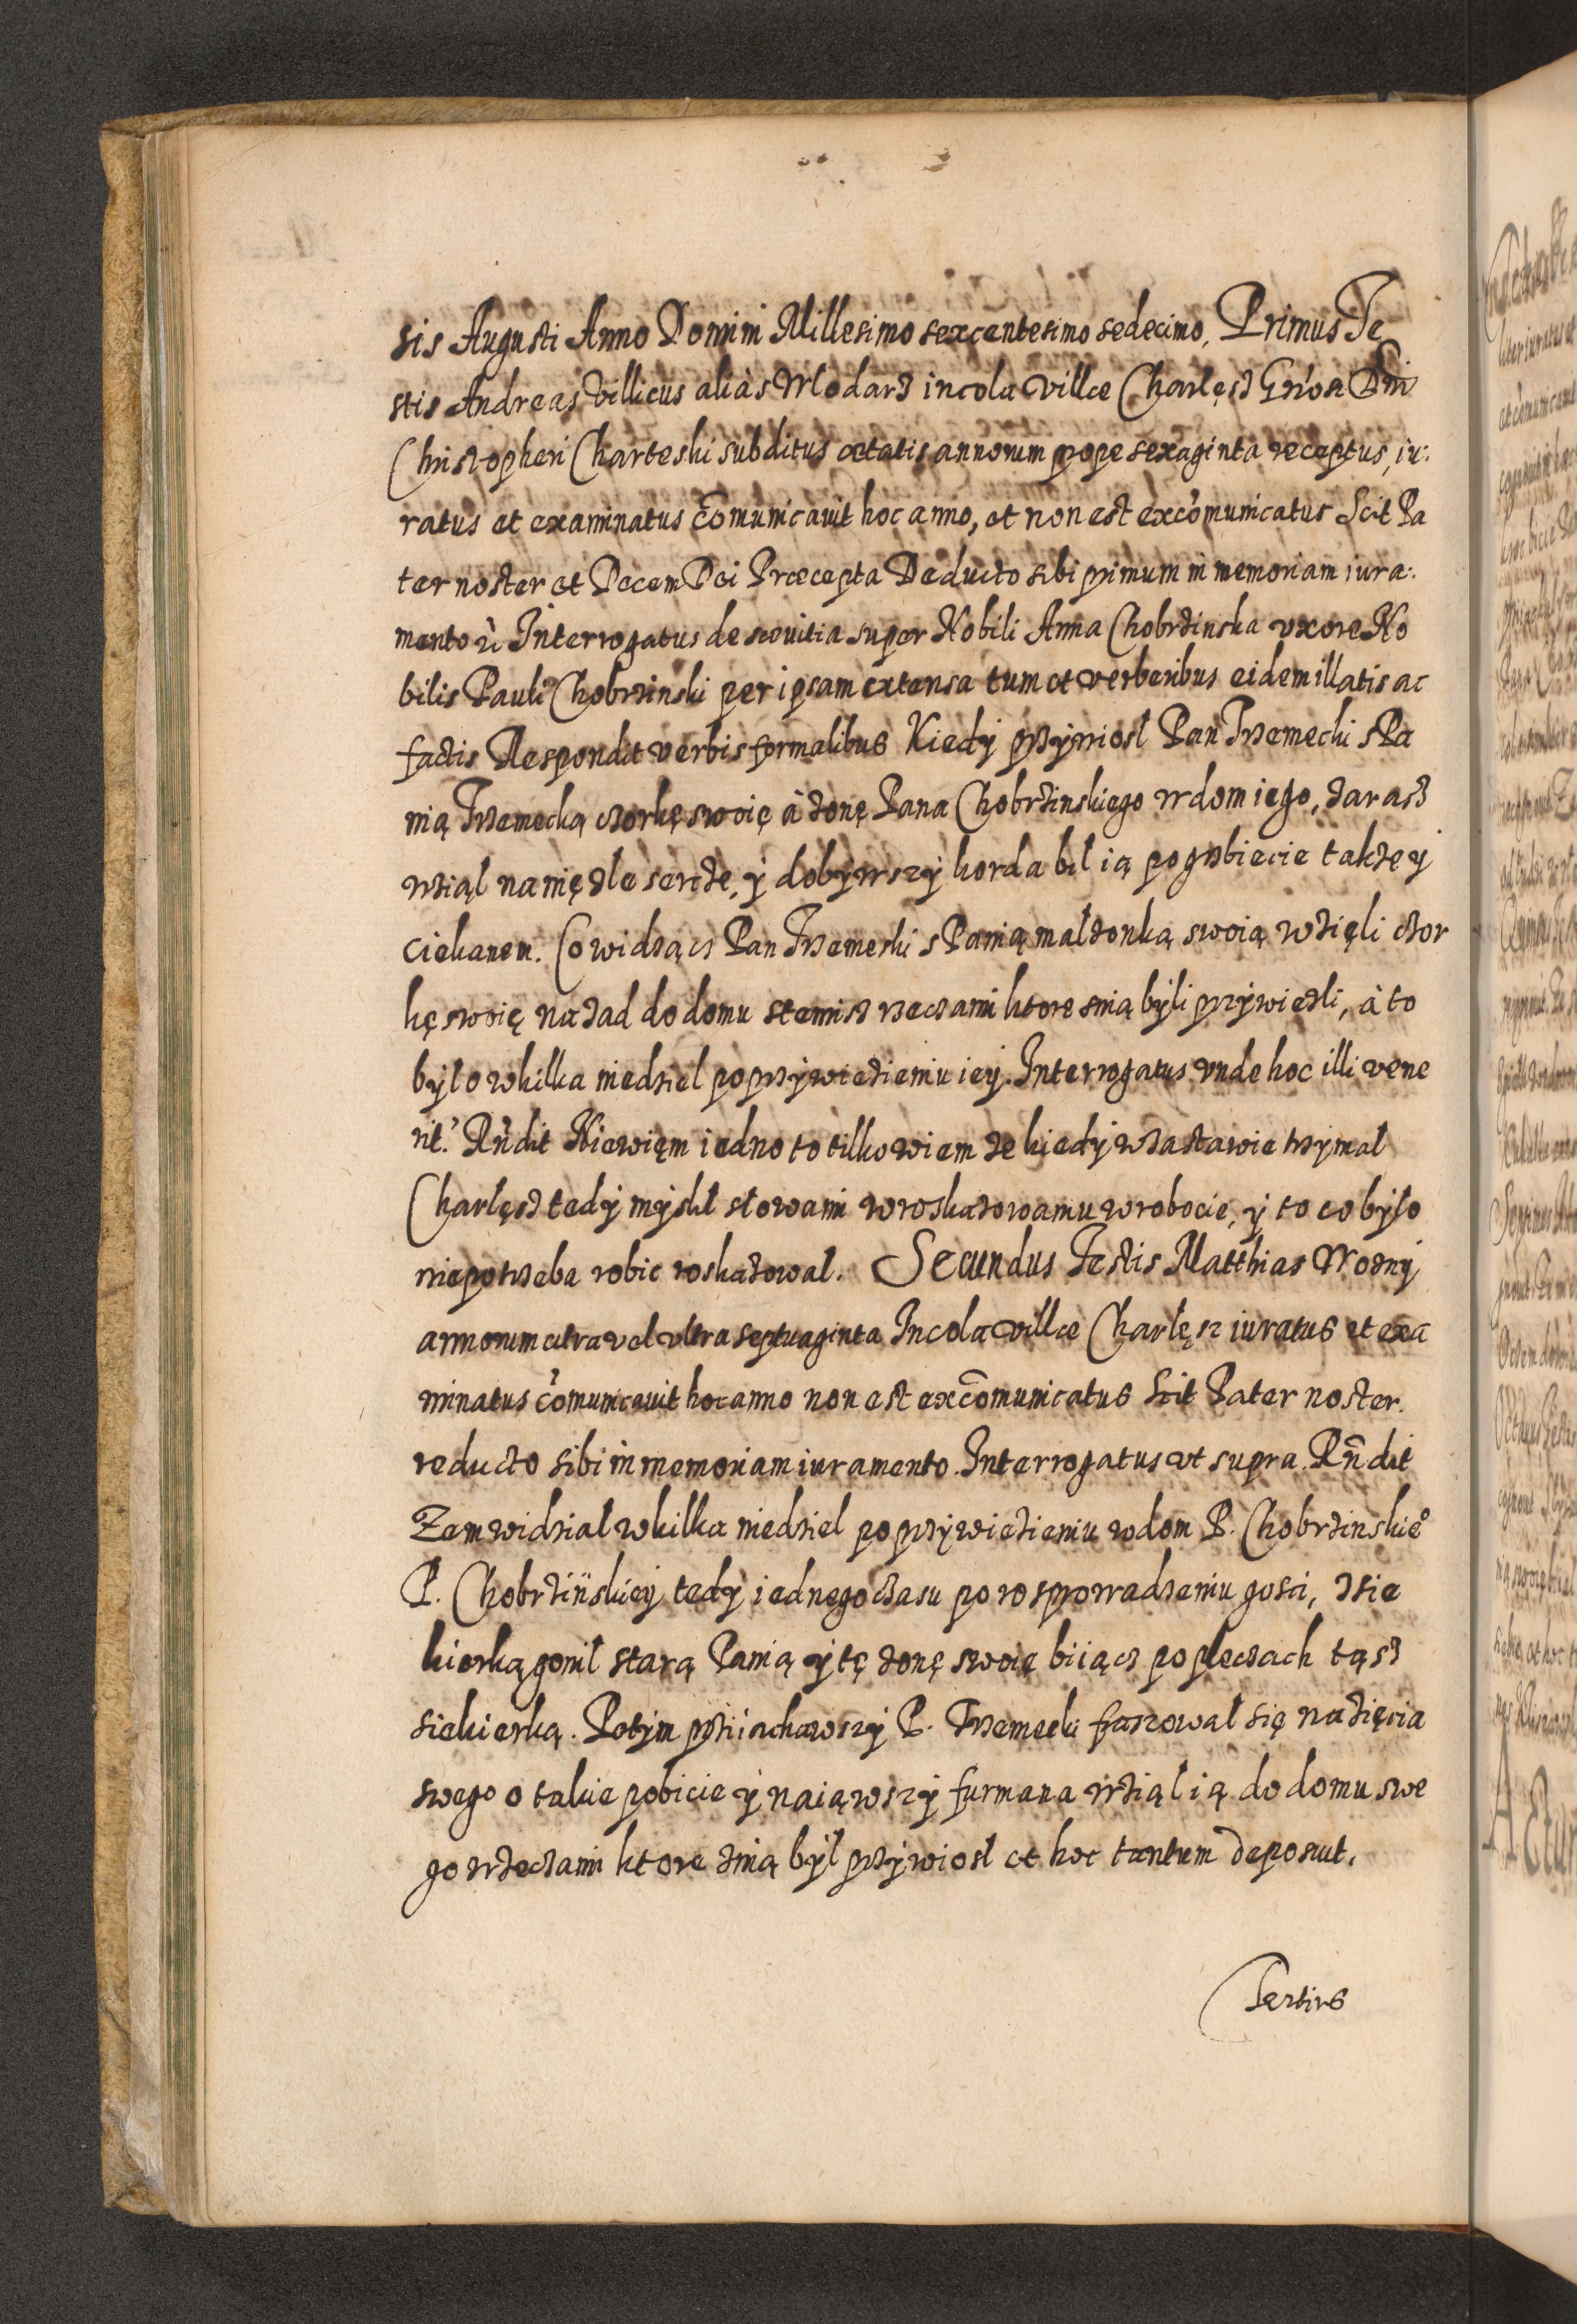 sis Augusti Anno Domini Millesimo sexcentesimo sedecimo, Primus Te
stis Andreas Villicus aliàs Wlodarz incola villæ Charlęsz Gn̄osi Dn̄i
Christopheri Charleski subditus ætatis annorum prope sexaginta receptus, iu:
ratus et examinatus Com̄unicauit hoc anno, et non est excom̄unicatus Scit Pa
ter noster et Decem Dei Præcepta Deducto sibi primum in memoriam iura:
mento Interrogatus de sæuitia super Nobili Anna Chobrzinska vxore No
bilis Pauli Chobrzinski per ipsam extensa tum et verberibus eidem illatis ac
factis Respondit verbis formalibus Kiedy przÿwiosl Pan Trzemecki s Pa
nią Trzemecką czorkę swoię à żonę Pana Chobrzinskiego w dom iego, zarasz
wziąl na nię zle serce, ÿ dobÿwszÿ korda bil ią po grzbiecie takze y
ciekanem. Co widząncz Pan Trzemeski s Panią malzonką swoią wzięli czor
kę swoię nazad do domu stemisz rzeczami ktore snią bÿli przÿwiezli, à to
bÿlo w kilka niedziel po przÿwiezieniu ieÿ. Interrogatus vnde hoc illi vene
rit? Rn̄dit Niewięm iedno to tilko wiem ze kiedÿ w zastawie trzymal
Charlęsz tedÿ mÿslil slowami w roskazowaniu w robocie, y to co bÿlo
niepotrzeba robic roskazowal. Secundus Testis Matthias Wozny
annorum citra vel vltra septuaginta Incola villæ Charlęsz iuratus et exa
minatus com̄unicauit hoc anno non est excom̄unicatus Scit Pater noster.
reducto sibi in memoriam iuramento. Interrogatus vt supra. Rn̄dit
Zem widzial w kilka niedziel po przÿwiezieniu w dom P. Chobrzinskie°
P. Chobrzinskieÿ tedÿ iednego czasu po rosprowadzeniu gosci, z sie
kierką gonil starą Panią ÿ tę zonę swoię biiącz po pleczach tąsz
siekierką. Potÿm prziiachawszÿ P. Trzemecki frasowal się na zięcia
swego o takie pobicie ÿ naiąwszÿ furmana wziąl ią do domu swe
go z rzeczami ktore znią bÿl przÿwiosl et hoc tantum deposuit.
Tertius